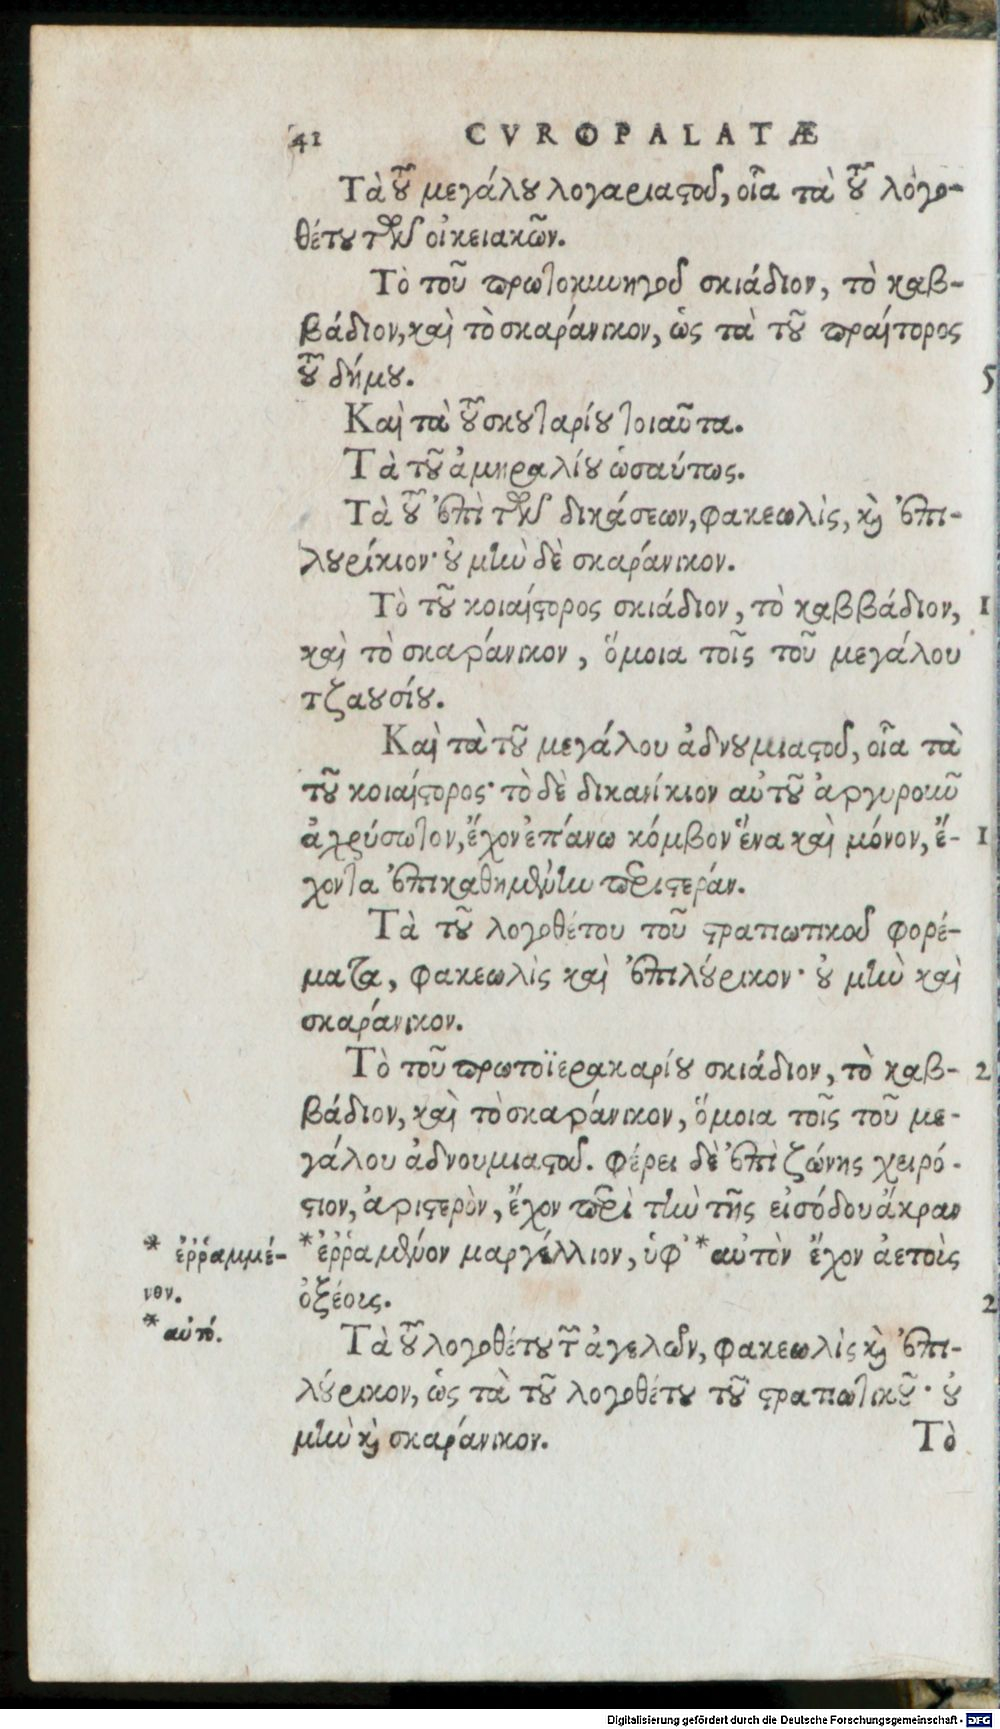 41 CVROPALATÆ
Τὰ τοῦ μεγάλου λογαριαστοῦ, οἷα τὰ τοῦ λογο-
θέτου τῶν οἰκειακῶν.
Τὸ τοῦ πρωτοκυνηγοῦ σκιάδιον, τὸ καβ-
βάδιον, καὶ τὸ σκαράνικον, ὡς τὰ τοῦ πραίτορος
τοῦ δήμου. 5
Καὶ τὰ τοῦ σκουταρίου τοιαῦτα.
Τὰ τοῦ ἀμηραλίου ὡσαύτως.
Τὰ τοῦ ἐπὶ τῶν δικάσεων, φακεωλὶς, καὶ ἐπι-
λουρίκιον· οὐ μὴν δὲ σκαράνικον.
Τὸ τοῦ κοιαίστορος σκιάδιον, τὸ καββάδιον, 1
καὶ τὸ σκαράνικον, ὅμοια τοῖς τοῦ μεγάλου
τζαουσίου.
Καὶ τὰ τοῦ μεγάλου ἀδνουμιαστοῦ, οἷα τὰ
τοῦ κοιαίστορος· τὸ δὲ δικανίκιον αὐτοῦ ἀργυροῦν
ἀχρύσωτον, ἔχον ἐπάνω κόμβον ἕνα καὶ μόνον, ἔ- 1
χοντα ἐπικαθημένην περιστεράν.
Τὰ τοῦ λογοθέτου τοῦ στρατιωτικοῦ φορέ-
ματα, φακεωλὶς καὶ ἐπιλούρικον· οὐ μὴν καὶ
σκαράνικον.
Τὸ τοῦ πρωτοϊερακαρίου σκιάδιον, τὸ καβ- 2
βάδιον, καὶ τὸ σκαράνικον, ὅμοια τοῖς τοῦ με-
γάλου ἀδνουμιαστοῦ. φέρει δὲ ἐπὶ ζώνης χειρό-
τιον, ἀριστερὸν, ἔχον περὶ τὴν τῆς εἰσόδου ἄκραν
*ἐῤῥαμμένον μαργέλλιον, ὑφ' *αὐτὸν ἔχον ἀετοὶς
ὀξέοις. 2
Τὰ τοῦ λογοθέτου τῶν ἀγελῶν, φακεωλὶς καὶ ἐπι-
λούρικον, ὡς τὰ τοῦ λογοθέτου τοῦ στρατιωτικοῦ· οὐ
μὴν καὶ σκαράνικον. Τὸ
* ἐῤῥαμμέ-
νον.
* αὐτό.
Digitalisierung gefördert durch die Deutsche Forschungsgemeinschaft - DFG